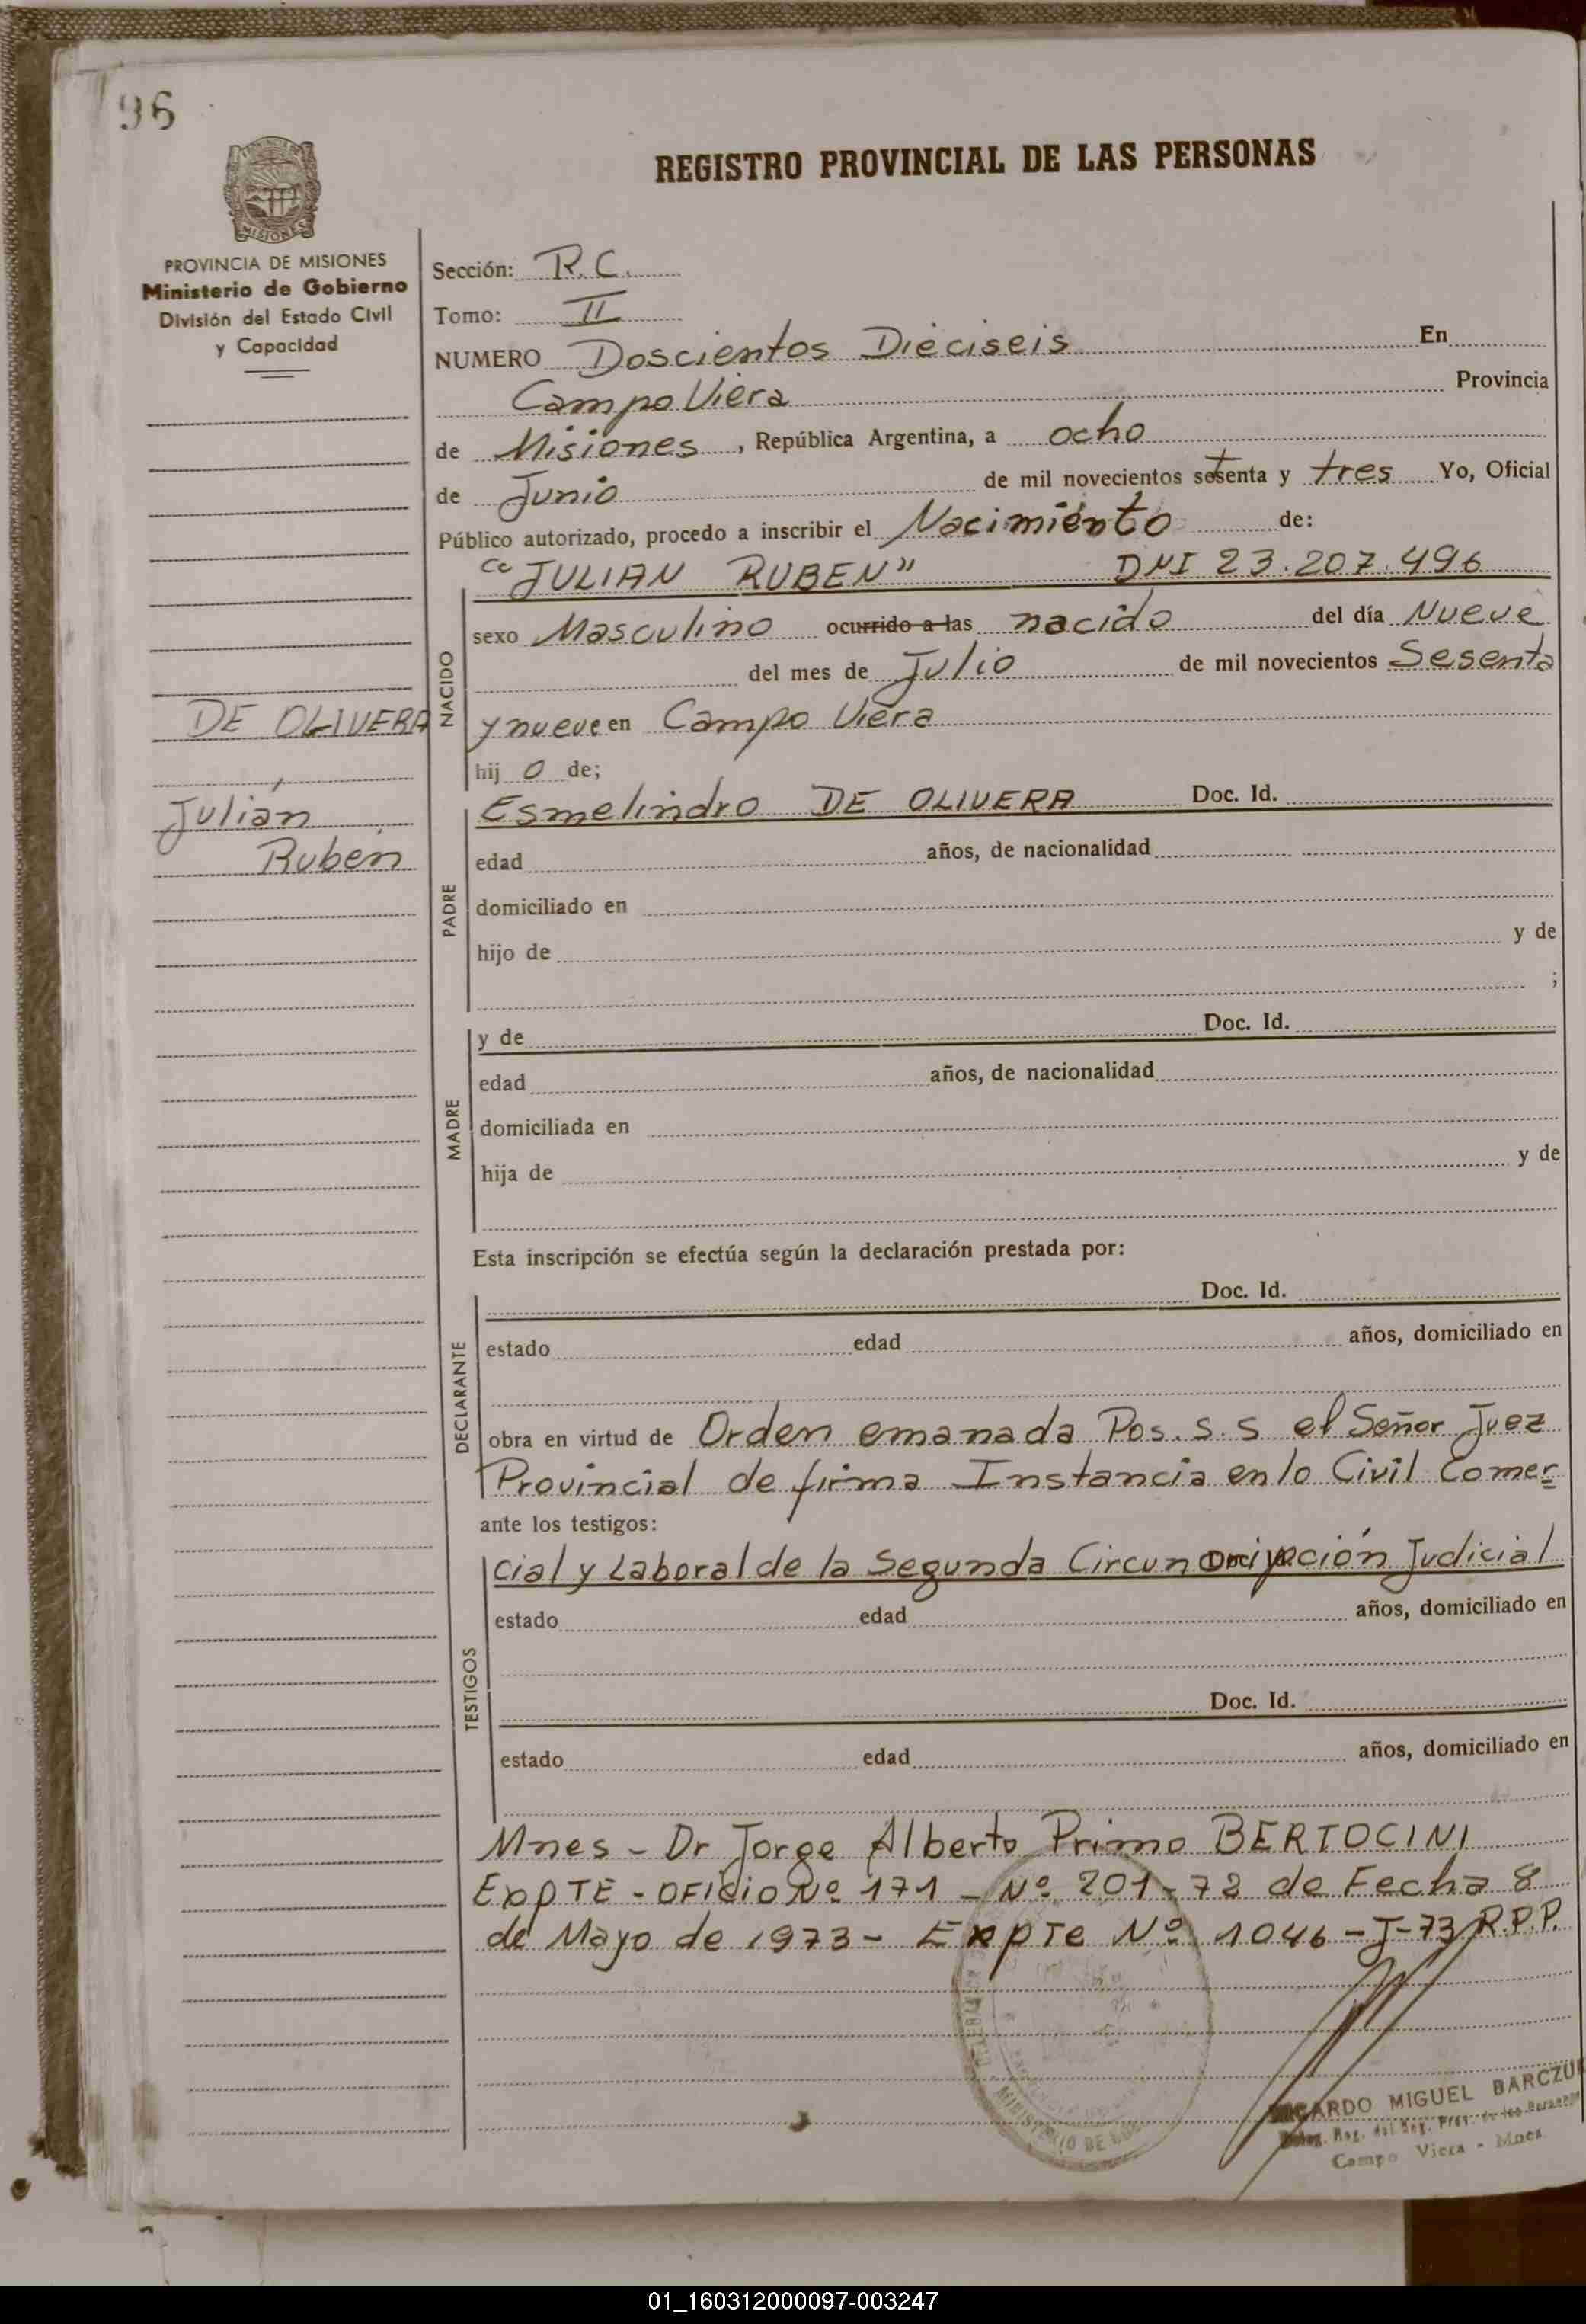 96
REGISTRO PROVINCIAL DE LAS PERSONAS
MISIONES
PROVINCIA DE MISIONES
Ministerio de Gobierno
División del Estado Civil
y Capacidad
Sección: R.C.
Tomo: II
NUMERO Doscientos Dieciseis En
Campo Viera Provincia
de Misiones, República Argentina, a ocho
de Junio de mil novecientos setenta y tres Yo, Oficial
Público autorizado, procedo a inscribir el Nacimiento de:
"JULIAN RUBEN" DNI 23.207.496
NACIDO
sexo Masculino ocurrido a las nacido del día Nueve
del mes de Julio de mil novecientos Sesenta
y nueve en Campo Viera
hij o de;
DE OLIVERA
Julián
Ruben
PADRE
Esmelindro DE OLIVERA Doc. Id.
edad años, de nacionalidad
domiciliado en
hijo de y de
;
MADRE
y de Doc. Id.
edad años, de nacionalidad
domiciliada en
hija de y de
Esta inscripción se efectúa según la declaración prestada por:
DECLARANTE
Doc. Id.
estado edad años, domiciliado en
obra en virtud de Orden emanada Pos. S.S el Señor Juez
Provincial de firma Instancia en lo Civil Comer
ante los testigos:
TESTIGOS
cial y Laboral de la Segunda Judicial
estado edad años, domiciliado en
Doc. Id.
estado edad años, domiciliado en
Mnes - Dr Jorge Alberto Primo BERTOCINI
ExpTE - OFICIO Nº 171 - Nº 201-72 de Fecha 8
de Mayo de 1973 - ExpTe Nº 1046-J-73 R.P.P.
MINISTERIO DE
MIGUEL BARCZUK
Campo Viera - Mnes
01_160312000097-003247